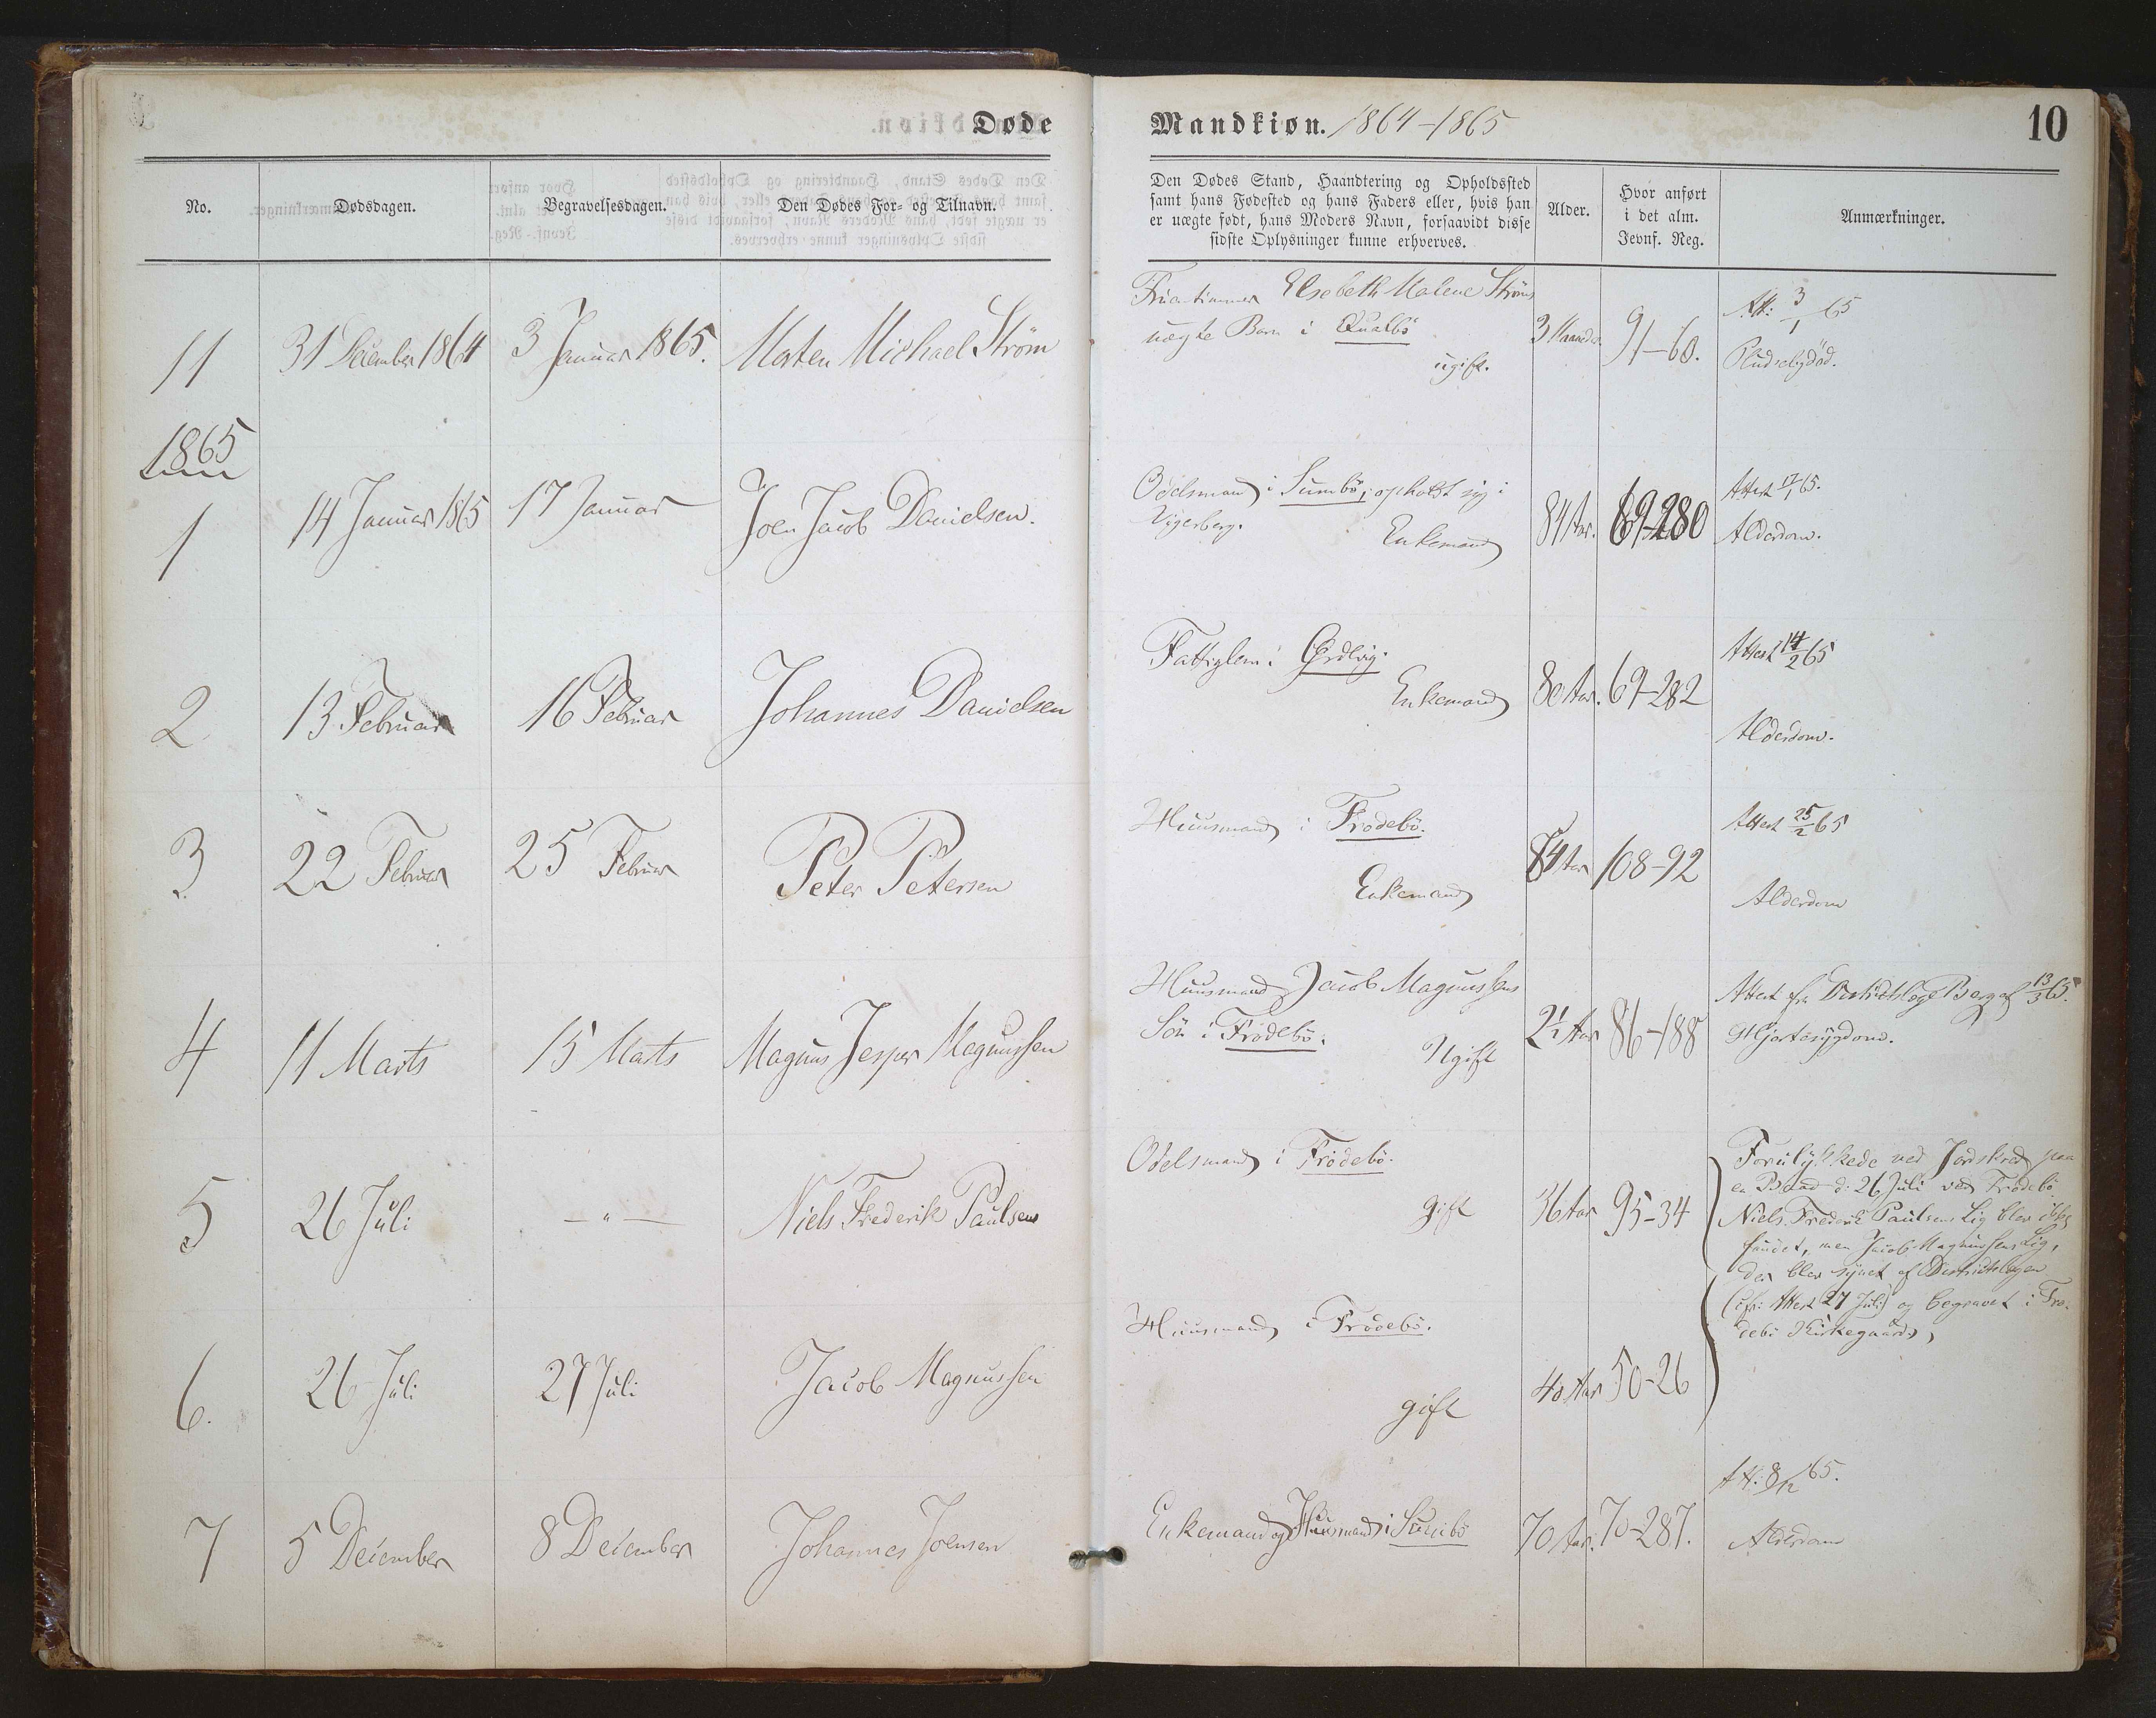 Døde
Mandkiøn. 1864-1865
10
No.
Dødsdagen.
Begravelsesdagen.
Den Dødes For- og Tilnavn.
Den Dødes Stand, Haandtering og Opholdssted
samt hans Fødested og hans Faders eller, hvis han
er uægte født, hans Moders Navn, forsaavidt disse
sidste Oplysninger kunne erhverves.
Alder.
Hvor anført
i det alm.
Jevnf. Reg.
Anmærkninger.
11
31 December 1864
3 Januar 1865.
Morten Michael Strøm
Fruentimmer Elsebeth Malene Strøms
uægte Barn i Qualbö
ugift.
3 Maaneder
91-60.
Att: 3/1 65
Pludseligdöd.
1865
1
14 Januar 1865
17 Januar
Joen Jacob Danielsen.
Odelsmand i Sumbö, opholdt sig i
Vigerberg.
Enkemand
84 Aar.
69-280
Attest 17/1 65.
Alderdom.
2
13 Februar
16 Februar
Johannes Danielsen
Fattiglem i Ördevig.
Enkemand
80 Aar.
69-282
Attest 14/2 65
Alderdom.
3
22 Februar
25 Februar
Peter Petersen
Huusmand i Frodebö.
Enkemand
84 Aar
108-92
Attest 25/2 65
Alderdom
4
11 Marts
15 Marts
Magnus Jesper Magnussen
Huusmand Jacob Magnussens
Sön i Frodebö.
Ugift
2½ Aar
86-188
Attest fra Districtslæge Berg af 13/3 65.
Hjertesygdom.
5
26 Juli
— " —
Niels Frederik Paulsen
Odelsmand i Frodebö.
gift
36 Aar
95-34
Forulykkede ved Jordskred paa
en Baad d: 26 Juli ved Frodebö.
Niels Frederik Paulsens Lig blev ikke
fundet, men Jacob Magnussens Lig,
der blev synet af Districtslægen
(cfr: Attest 27 Juli) og begravet i Fro-
debö Kirkegaard,
6.
26 Juli
27 Juli
Jacob Magnussen
Huusmand i Frodebö.
gift
40 Aar
50-26
7
5 December
8 December
Johannes Joensen
Enkemand og Huusmand i Sumbö
70 Aar.
70-287.
Att: 8/12 65.
Alderdom